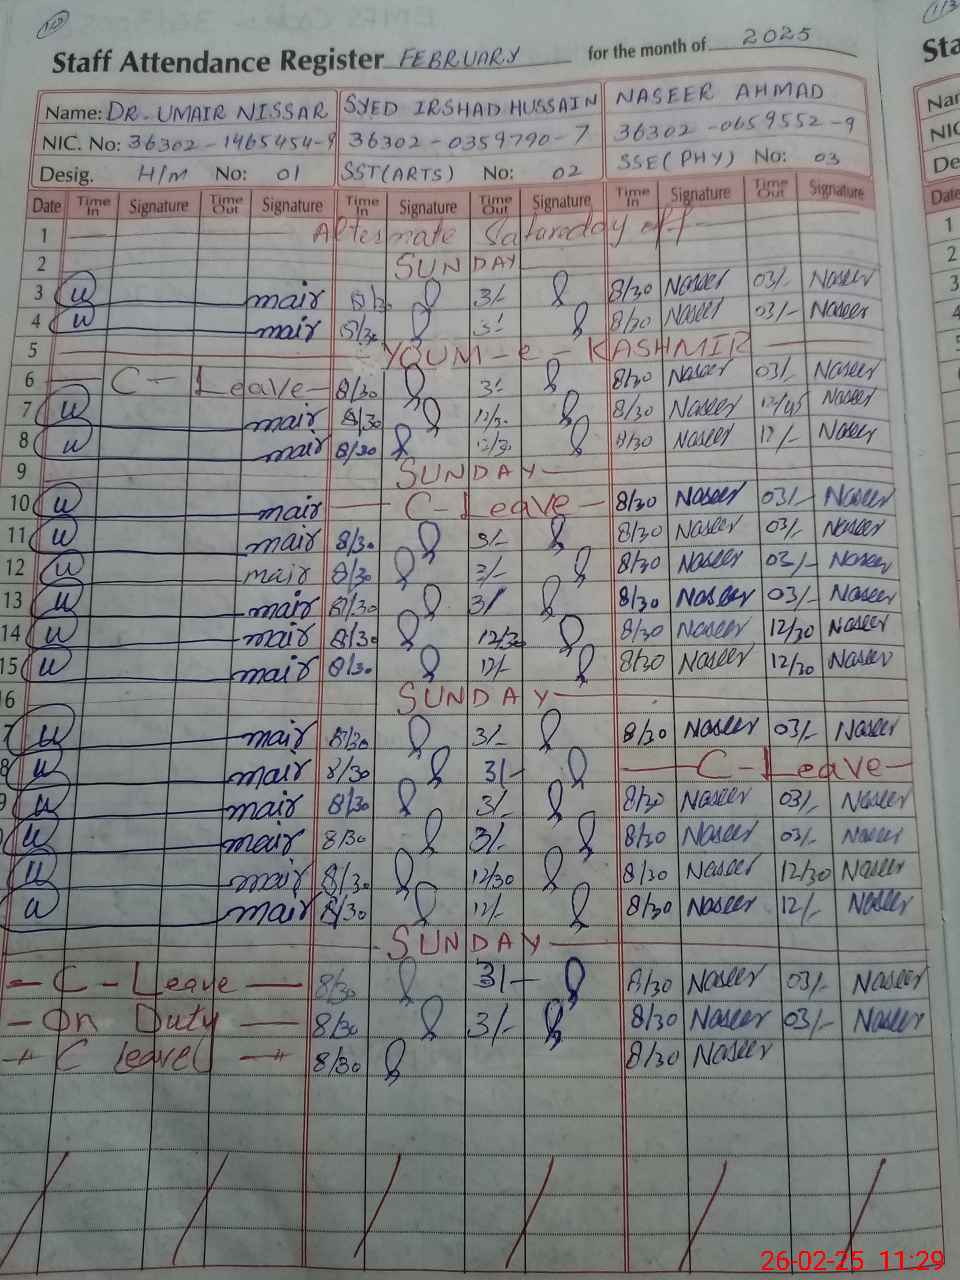 Staff Attendance Register FEBRUARY for the month of 2025
Name: DR. UMAIR NISSAR SYED IRSHAD HUSSAIN NASEER AHMAD
NIC. No: 36302-1465454-9 36302-0359790-7 36302-0659552-9
Desig. H/M No: 01 SST(ARTS) No: 02 SSE(PHY) No: 03
Date Time In Signature Time Out Signature Time In Signature Time Out Signature Time In Signature Time Out Signature
1 Alternate Saturday off
2 SUNDAY
3 u mair 8/30 3/- 8/30 Naseer 03/- Naseer
4 u mair 8/30 3/- 8/30 Naseer 03/- Naseer
5 YOUM-e-KASHMIR
6 C-Leave 8/30 3/- 8/30 Naseer 03/- Naseer
7 u mair 8/30 12/30 8/30 Naseer 12/45 Naseer
8 u mair 8/30 12/30 8/30 Naseer 12/- Naseer
9 SUNDAY
10 u mair C-Leave 8/30 Naseer 03/- Naseer
11 u mair 8/30 3/- 8/30 Naseer 03/- Naseer
12 u mair 8/30 3/- 8/30 Naseer 03/- Naseer
13 u mair 8/30 3/ 8/30 Naseer 03/- Naseer
14 u mair 8/30 12/30 8/30 Naseer 12/30 Naseer
15 u mair 8/30 12/- 8/30 Naseer 12/30 Naseer
16 SUNDAY
7 u mair 8/30 3/- 8/30 Naseer 03/- Naseer
8 u mair 8/30 3/- C-Leave
9 u mair 8/30 3/- 8/30 Naseer 03/- Naseer
u mair 8/30 3/- 8/30 Naseer 03/- Naseer
u mair 8/30 12/30 8/30 Naseer 12/30 Naseer
u mair 8/30 12/- 8/30 Naseer 12/- Naseer
SUNDAY
C-Leave 8/30 3/- 8/30 Naseer 03/- Naseer
On Duty 8/30 3/- 8/30 Naseer 03/- Naseer
C leave 8/30 8/30 Naseer
26-02-25 11:29